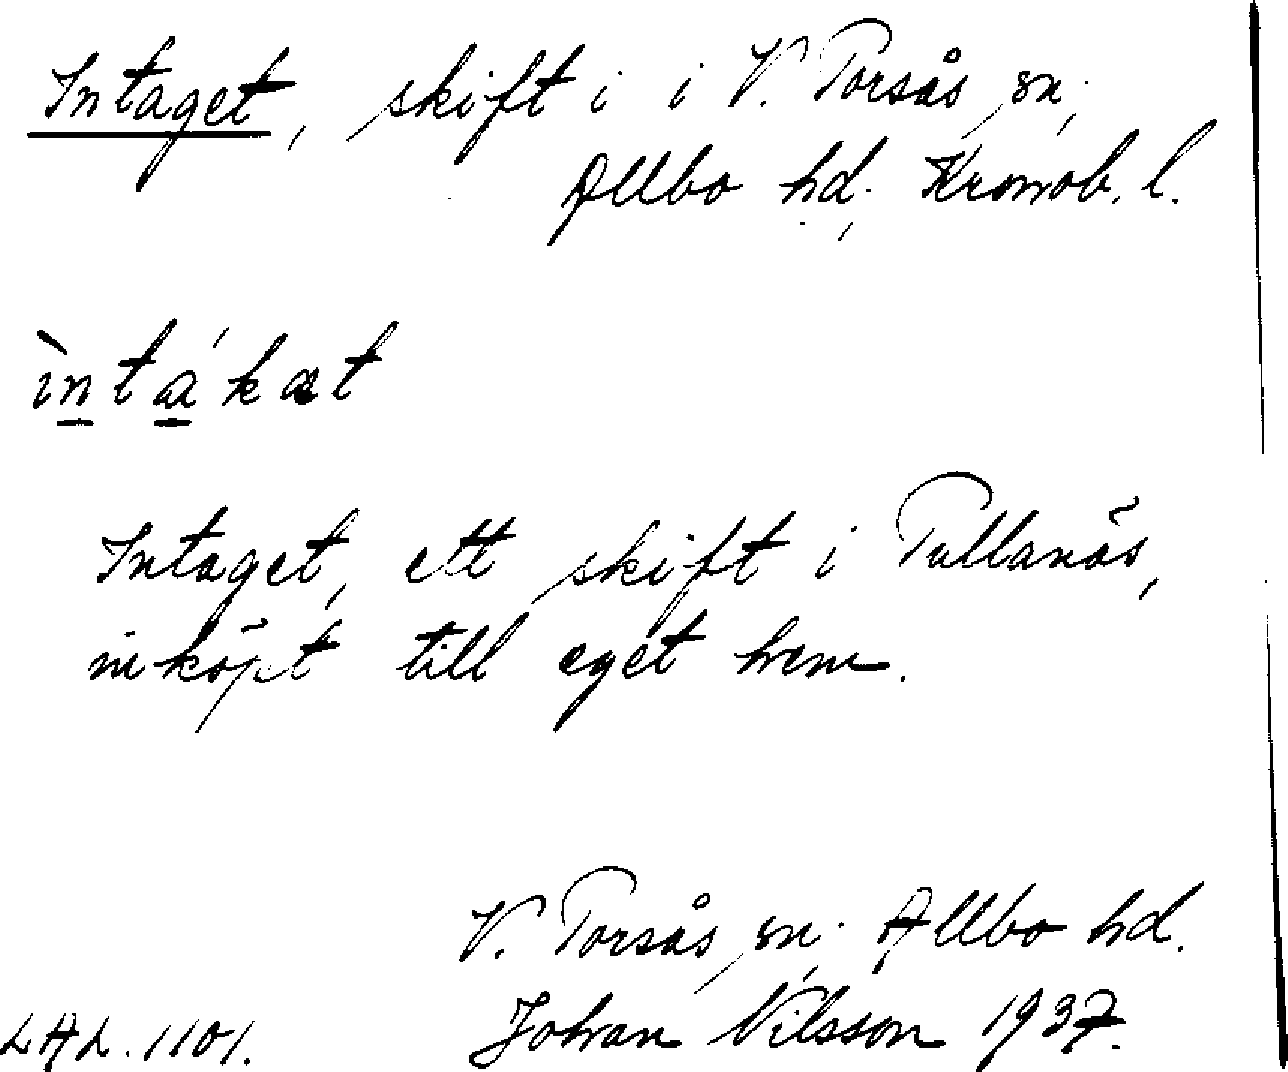 Intaget, skift i i V. Torsås sn,
Allbo hd. Kronob. l.
ìntákat
Intaget, ett skift i Tullanäs,
inköpt till eget hem.
V. Torsås sn. Allbo hd.
LAL. 1101. Johan Nilsson 1937.